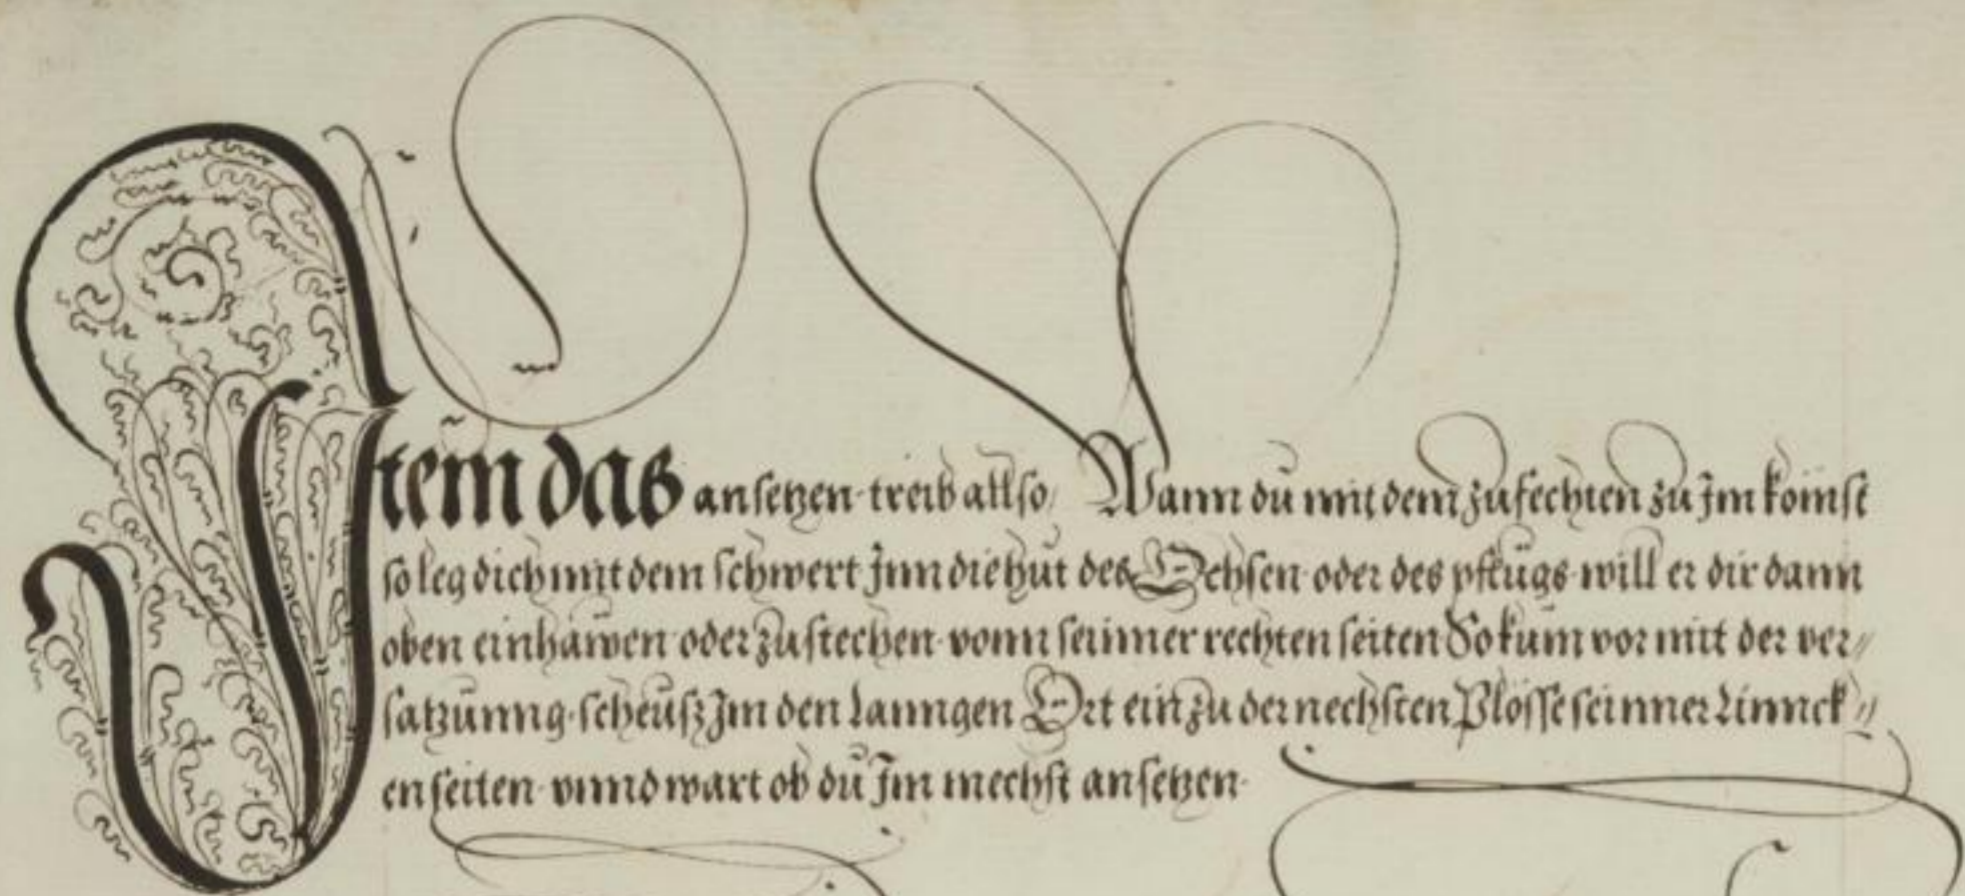 Item das ansetzen treib allso Wann dū mit dem zūfechten zū Jm komst
so leg dich mit dem schwert Jnn die hūt des Ochsen oder des pflūgs will er dir dann
oben einhawen oder zūstechen vonn seinner rechten seiten So kūm vor mit der ver⸗
satzūnng scheūsz Jm den Lanngen Ort ein zū der nechsten Plösse seinner Linnck⸗
en seiten vnnd wart ob dū Jm mechst ansetzen